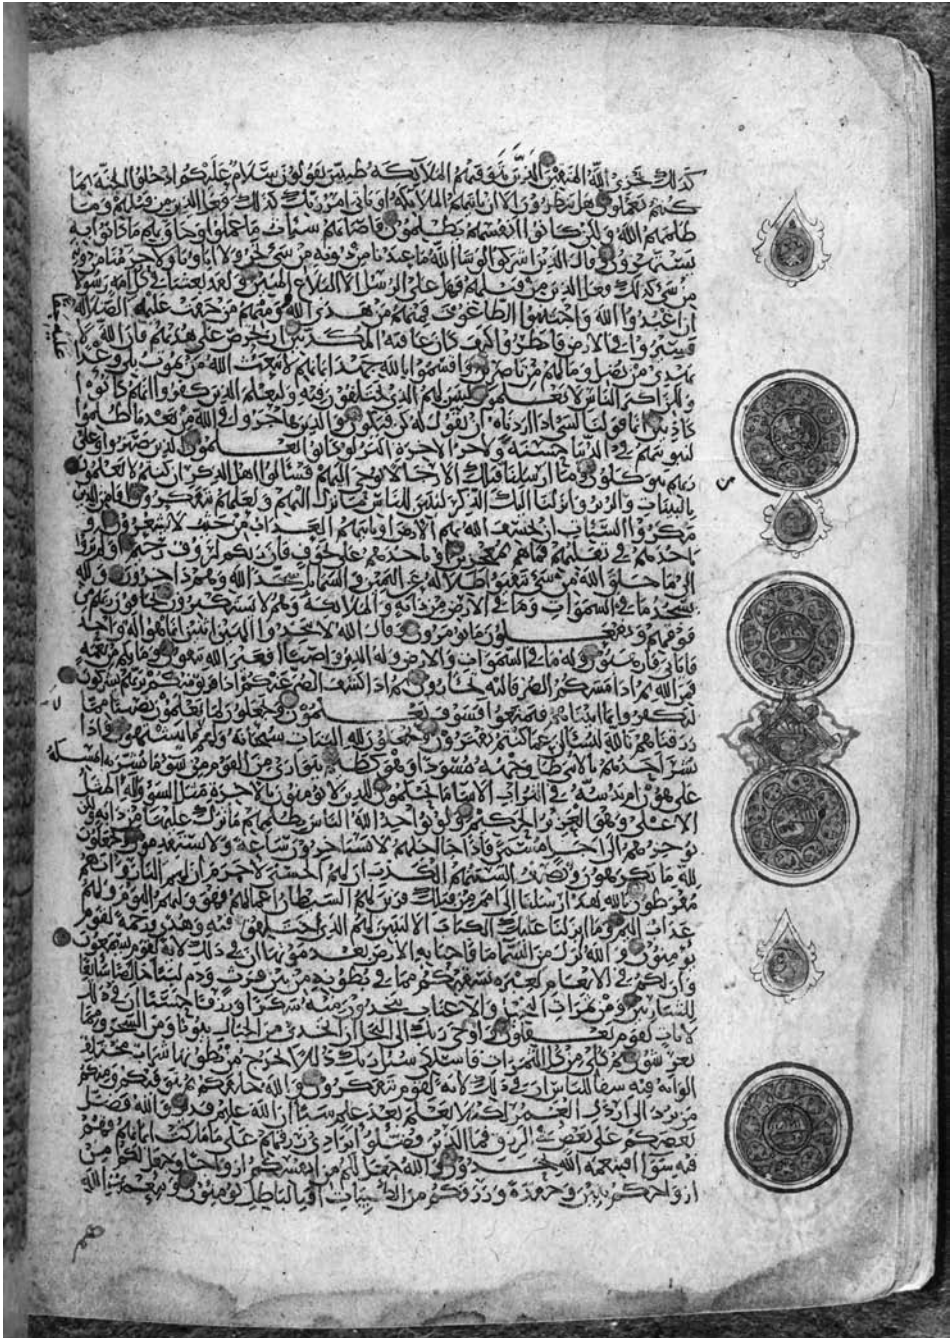 كذلك يجزي الله المتقين الذين تتوفيهم الملائكة طيبين يقولون سلام عليكم ادخلوا الجنة بما
كنتم تعملون هل ينظرون الا ان تاتيهم الملائكة او ياتي امر ربك كذلك فعل الذين من قبلهم وما
ظلمهم الله ولكن كانوا انفسهم يظلمون فاصابهم سيئات ما عملوا وحاق بهم ما كانوا به
يستهزون وقال الذين اشركوا لو شا الله ما عبدنا من دونه من شي نحن ولا اباونا ولا حرمنا من دونه
من شي كذلك فعل الذين من قبلهم فهل على الرسل الا البلاغ المبين ولقد بعثنا في كل امة رسولا
ان اعبدوا الله واجتنبوا الطاغوت فمنهم من هدى الله ومنهم من حقت عليه الضلالة
فسيروا في الارض فانظروا كيف كان عاقبة المكذبين ان تحرص على هديهم فان الله لا
يهدي من يضل وما لهم من ناصرين واقسموا بالله جهد ايمانهم لا يبعث الله من يموت بلى وعدا
عليه حقا
ولكن اكثر الناس لا يعلمون ليبين لهم الذي يختلفون فيه وليعلم الذين كفروا انهم كانوا
كاذبين انما قولنا لشي اذا اردناه ان نقول له كن فيكون والذين هاجروا في الله من بعد ما ظلموا
لنبوئنهم في الدنيا حسنة ولاجر الاخرة اكبر لو كانوا يعلمون الذين صبروا وعلى
ربهم يتوكلون وما ارسلنا من قبلك الا رجالا نوحي اليهم فسئلوا اهل الذكر ان كنتم لا تعلمون
بالبينات والزبر وانزلنا اليك الذكر لتبين للناس ما نزل اليهم ولعلهم يتفكرون افامن الذين
مكروا السيئات ان يخسف الله بهم الارض او ياتيهم العذاب من حيث لا يشعرون او
ياخذهم في تقلبهم فما هم بمعجزين او ياخذهم على تخوف فان ربكم لروف رحيم اولم يروا
الى ما خلق الله من شي يتفيوا ظلاله عن اليمين والشمائل سجدا لله وهم داخرون ولله
يسجد ما في السموات وما في الارض من دابة والملائكة وهم لا يستكبرون يخافون ربهم من
فوقهم ويفعلون ما يومرون وقال الله لا تتخذوا الهين اثنين انما هو اله واحد
فاياي فارهبون وله ما في السموات والارض وله الدين واصبا افغير الله تتقون وما بكم من نعمة
فمن الله ثم اذا مسكم الضر فاليه تجئرون ثم اذا كشف الضر عنكم اذا فريق منكم بربهم يشركون
ليكفروا بما اتيناهم فتمتعوا فسوف تعلمون ويجعلون لما لا يعلمون نصيبا مما
رزقناهم تالله لتسئلن عما كنتم تفترون ويجعلون لله البنات سبحانه ولهم ما يشتهون واذا
بشر احدهم بالانثى ظل وجهه مسودا وهو كظيم يتوارى من القوم من سو ما بشر به ايمسكه
على هون ام يدسه في التراب الا سا ما يحكمون للذين لا يومنون بالاخرة مثل السو ولله المثل
الاعلى وهو العزيز الحكيم ولو يواخذ الله الناس بظلمهم ما ترك عليها من دابة ولكن
يوخرهم الى اجل مسمى فاذا جا اجلهم لا يستاخرون ساعة ولا يستقدمون ويجعلون
لله ما يكرهون وتصف السنتهم الكذب ان لهم الحسنى لا جرم ان لهم النار وانهم
مفرطون تالله لقد ارسلنا الى امم من قبلك فزين لهم الشيطان اعمالهم فهو وليهم اليوم ولهم
عذاب اليم وما انزلنا عليك الكتاب الا لتبين لهم الذي اختلفوا فيه وهدى ورحمة لقوم
يومنون والله انزل من السما ما فاحيا به الارض بعد موتها ان في ذلك لاية لقوم يسمعون
وان لكم في الانعام لعبرة نسقيكم مما في بطونه من بين فرث ودم لبنا خالصا سائغا
للشاربين ومن ثمرات النخيل والاعناب تتخذون منه سكرا ورزقا حسنا ان في ذلك
لاية لقوم يعقلون واوحى ربك الى النحل ان اتخذي من الجبال بيوتا ومن الشجر ومما
يعرشون ثم كلي من كل الثمرات فاسلكي سبل ربك ذللا يخرج من بطونها شراب مختلف
الوانه فيه شفا للناس ان في ذلك لاية لقوم يتفكرون والله خلقكم ثم يتوفيكم ومنكم
من يرد الى ارذل العمر لكي لا يعلم بعد علم شيئا ان الله عليم قدير والله فضل
بعضكم على بعض في الرزق فما الذين فضلوا برادي رزقهم على ما ملكت ايمانهم فهم
فيه سوا افبنعمة الله يجحدون والله جعل لكم من انفسكم ازواجا وجعل لكم من
ازواجكم بنين وحفدة ورزقكم من الطيبات افبالباطل يومنون وبنعمت الله
هم